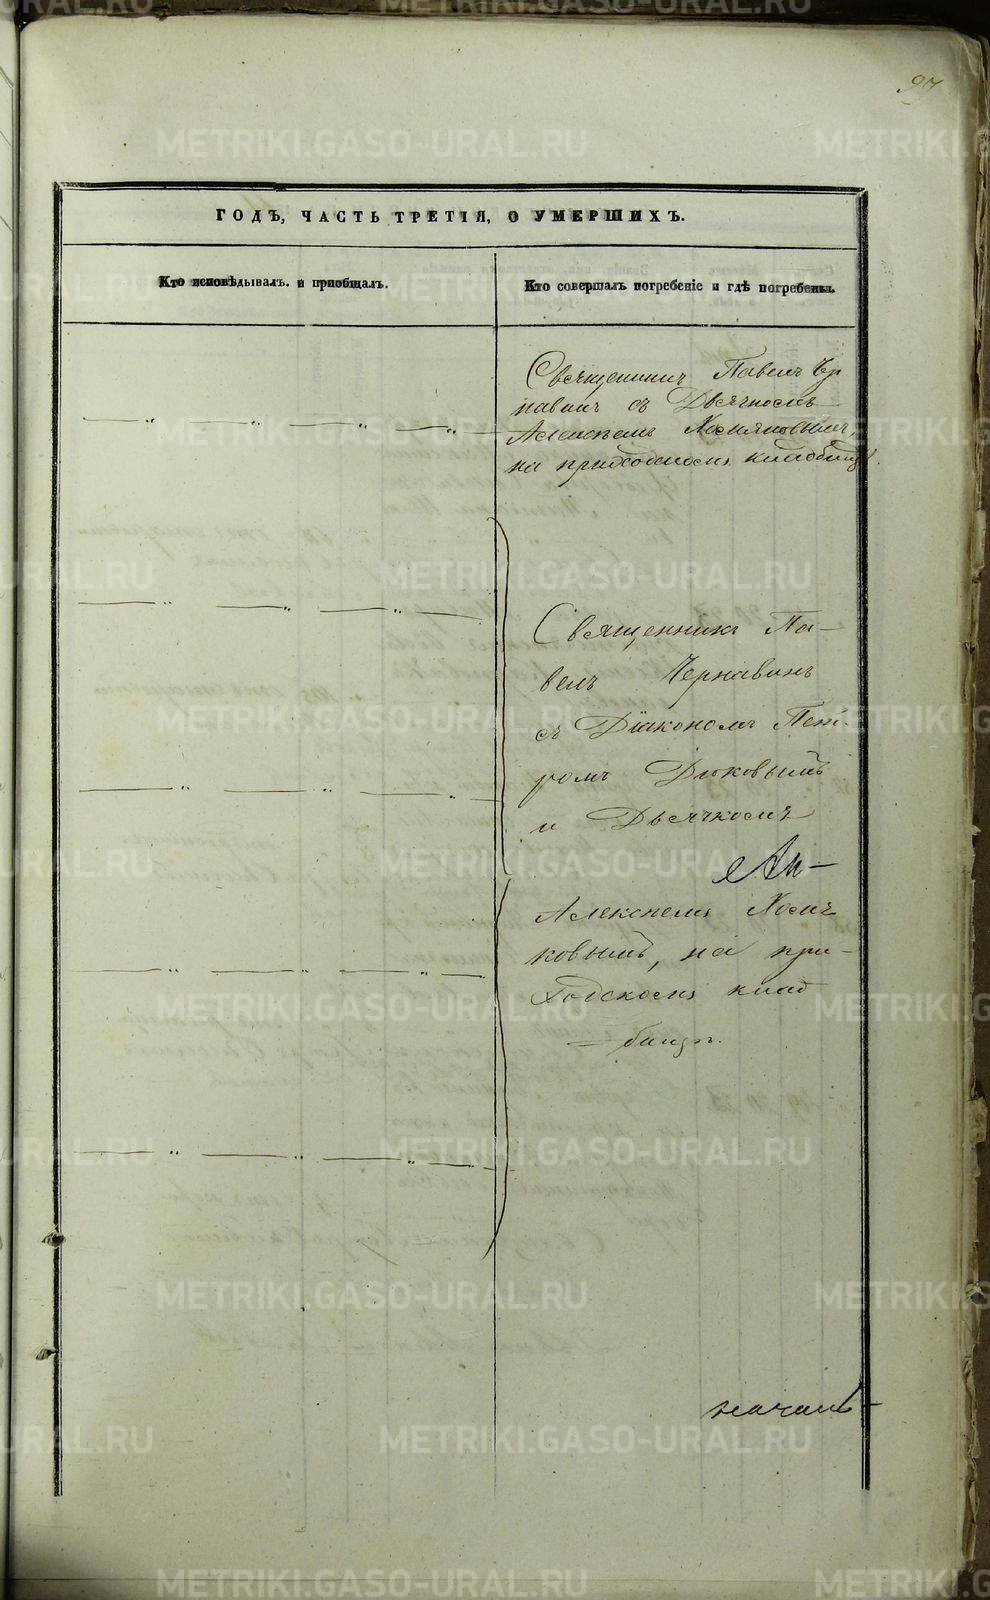 97
ГОДЪ, ЧАСТЬ ТРЕТІЯ, О УМЕРШИХЪ.
Кто исповѣдывалъ и пріобщалъ.
Кто совершалъ погребеніе и гдѣ погребены.
Священникъ Павелъ Чер
навинъ съ Дьячкомъ
Алексѣемъ Хомяковымъ,
на приходскомъ кладбищѣ.
Священникъ Па–
велъ Чернавинъ
съ Діакономъ Пет–
ромъ Диковымъ
и Дьячкомъ
Алексѣемъ Хомя
ковымъ, на при–
ходскомъ клад
– бищѣ.
METRIKI.GASO-URAL.RU